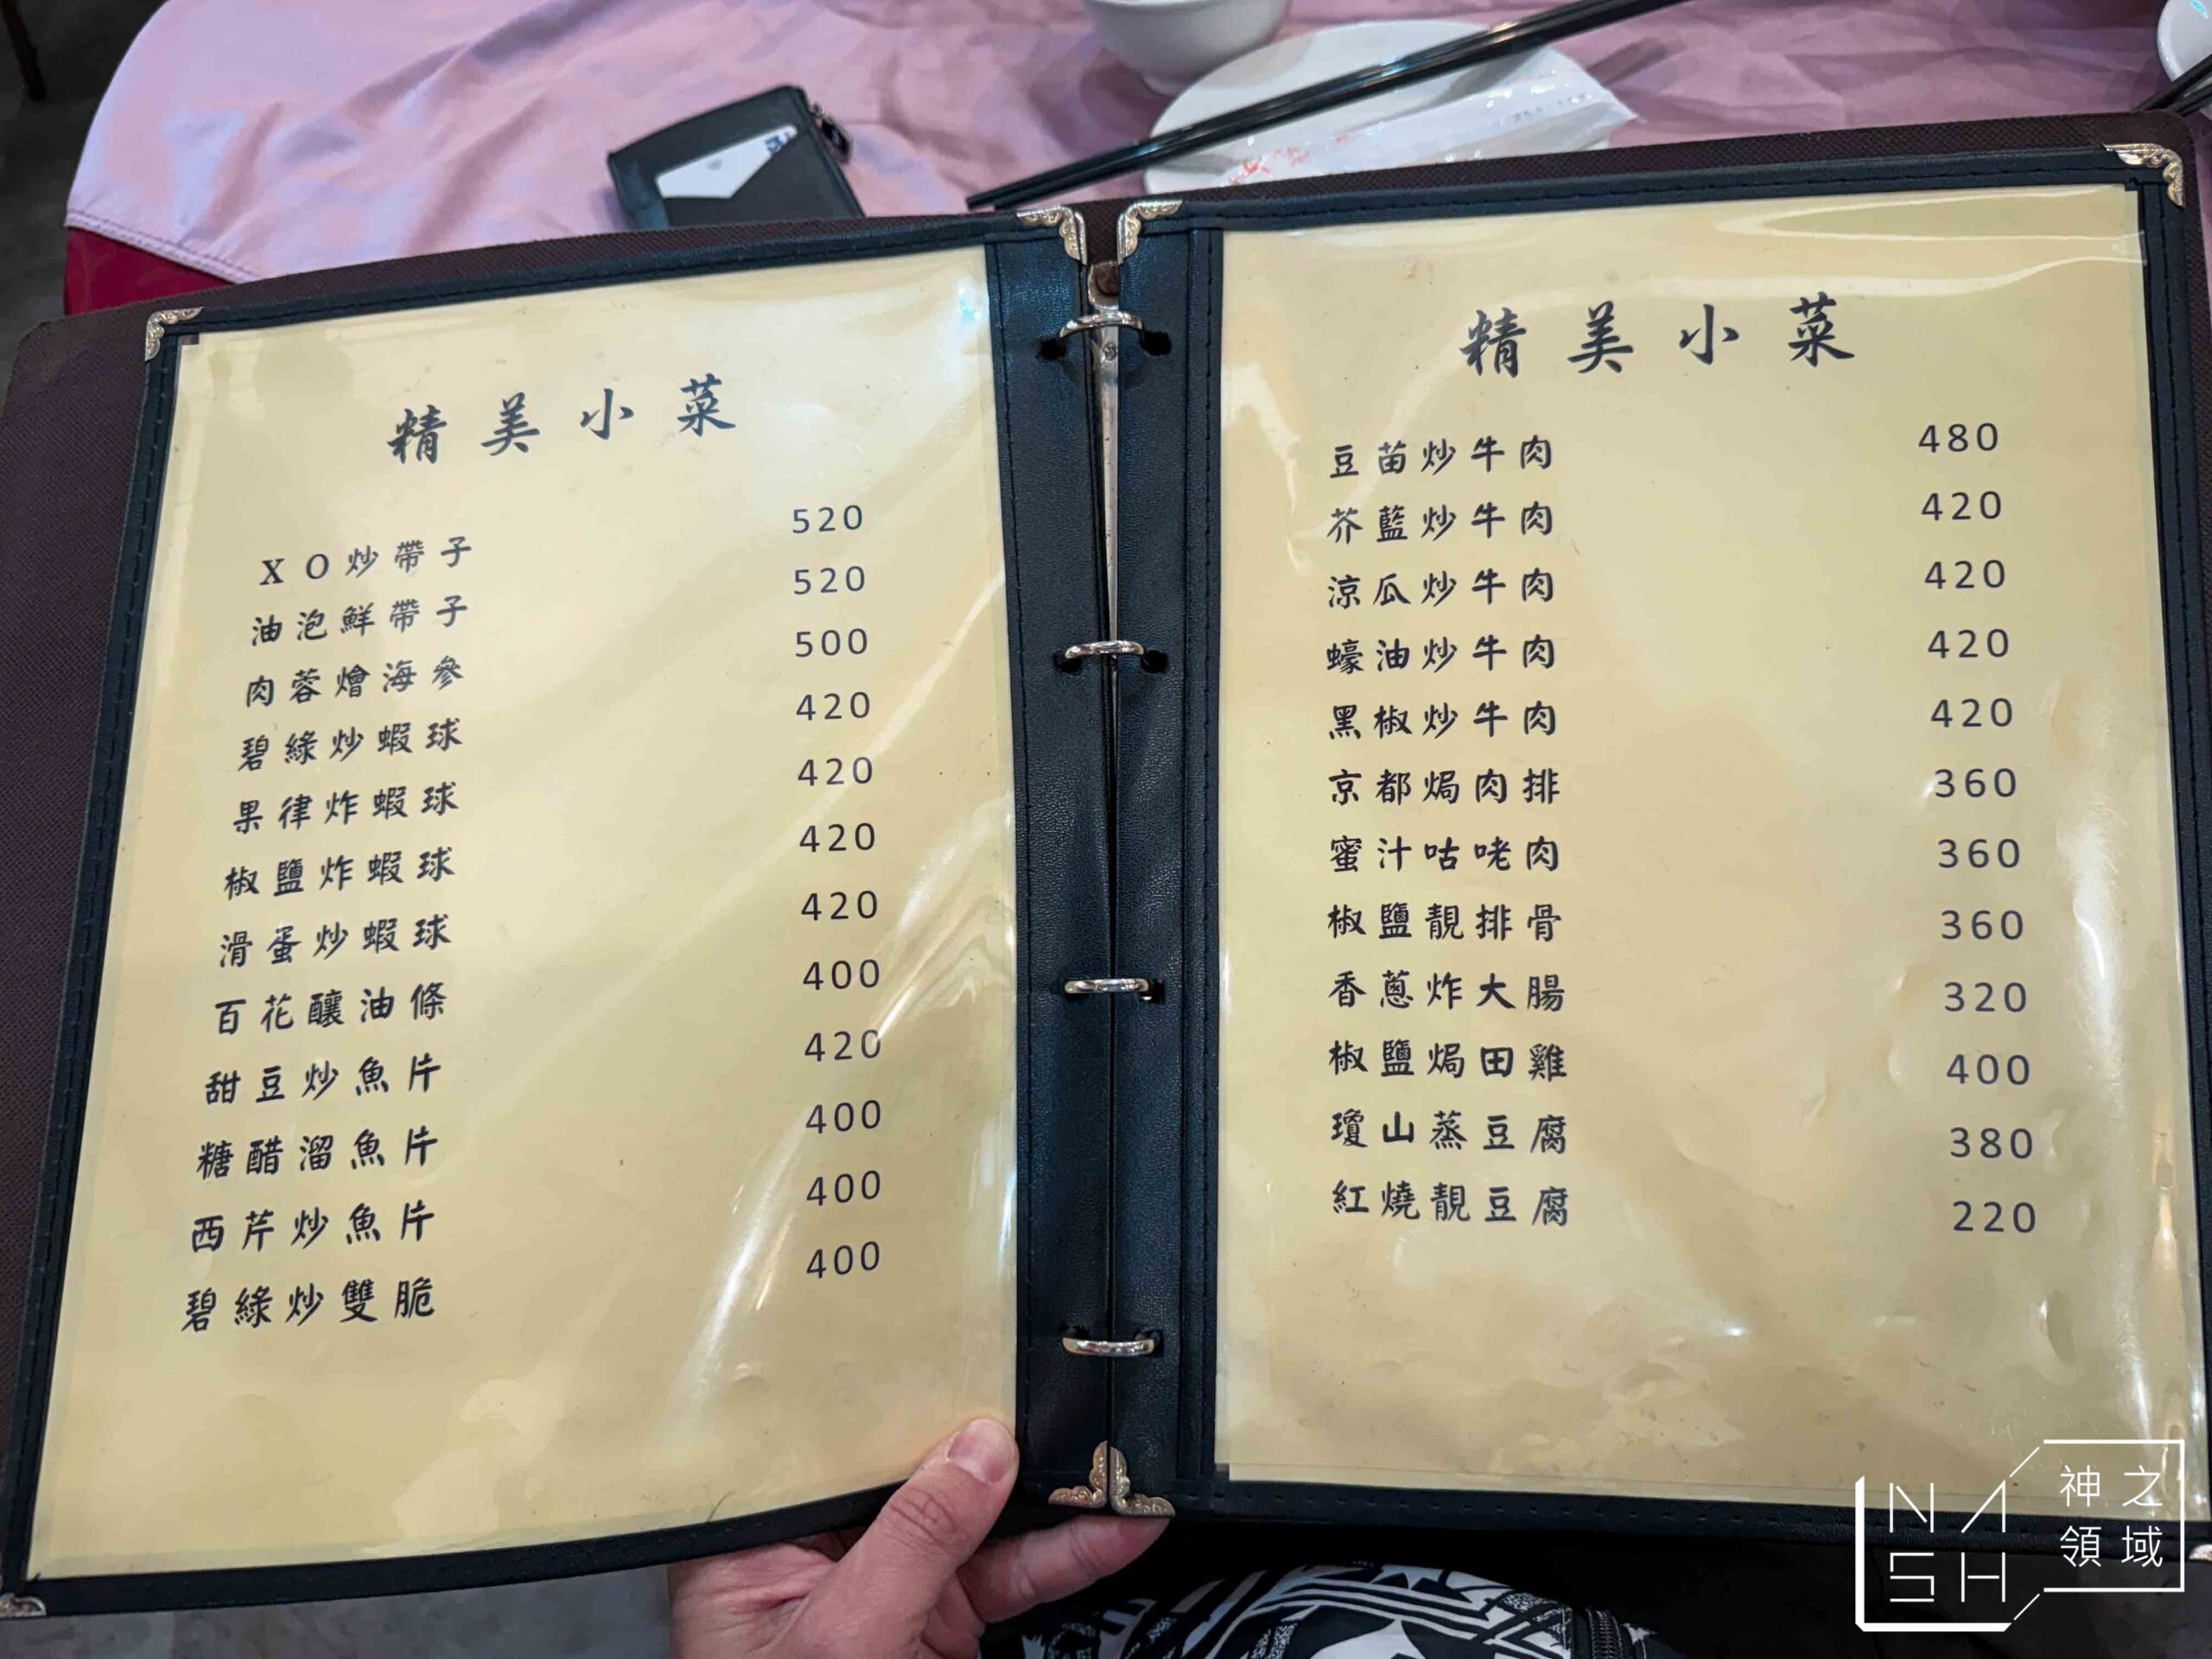 精美小菜
XO炒帶子 520
油泡鮮帶子 520
肉蓉燴海參 500
碧綠炒蝦球 420
果律炸蝦球 420
椒鹽炸蝦球 420
滑蛋炒蝦球 420
百花釀油條 400
甜豆炒魚片 420
糖醋溜魚片 400
西芹炒魚片 400
碧綠炒雙脆 400
精美小菜
豆苗炒牛肉 480
芥藍炒牛肉 420
涼瓜炒牛肉 420
蠔油炒牛肉 420
黑椒炒牛肉 420
京都焗肉排 360
蜜汁咕咾肉 360
椒鹽靚排骨 360
香蔥炸大腸 320
椒鹽焗田雞 400
瓊山蒸豆腐 380
紅燒靚豆腐 220
NASH
神之領域